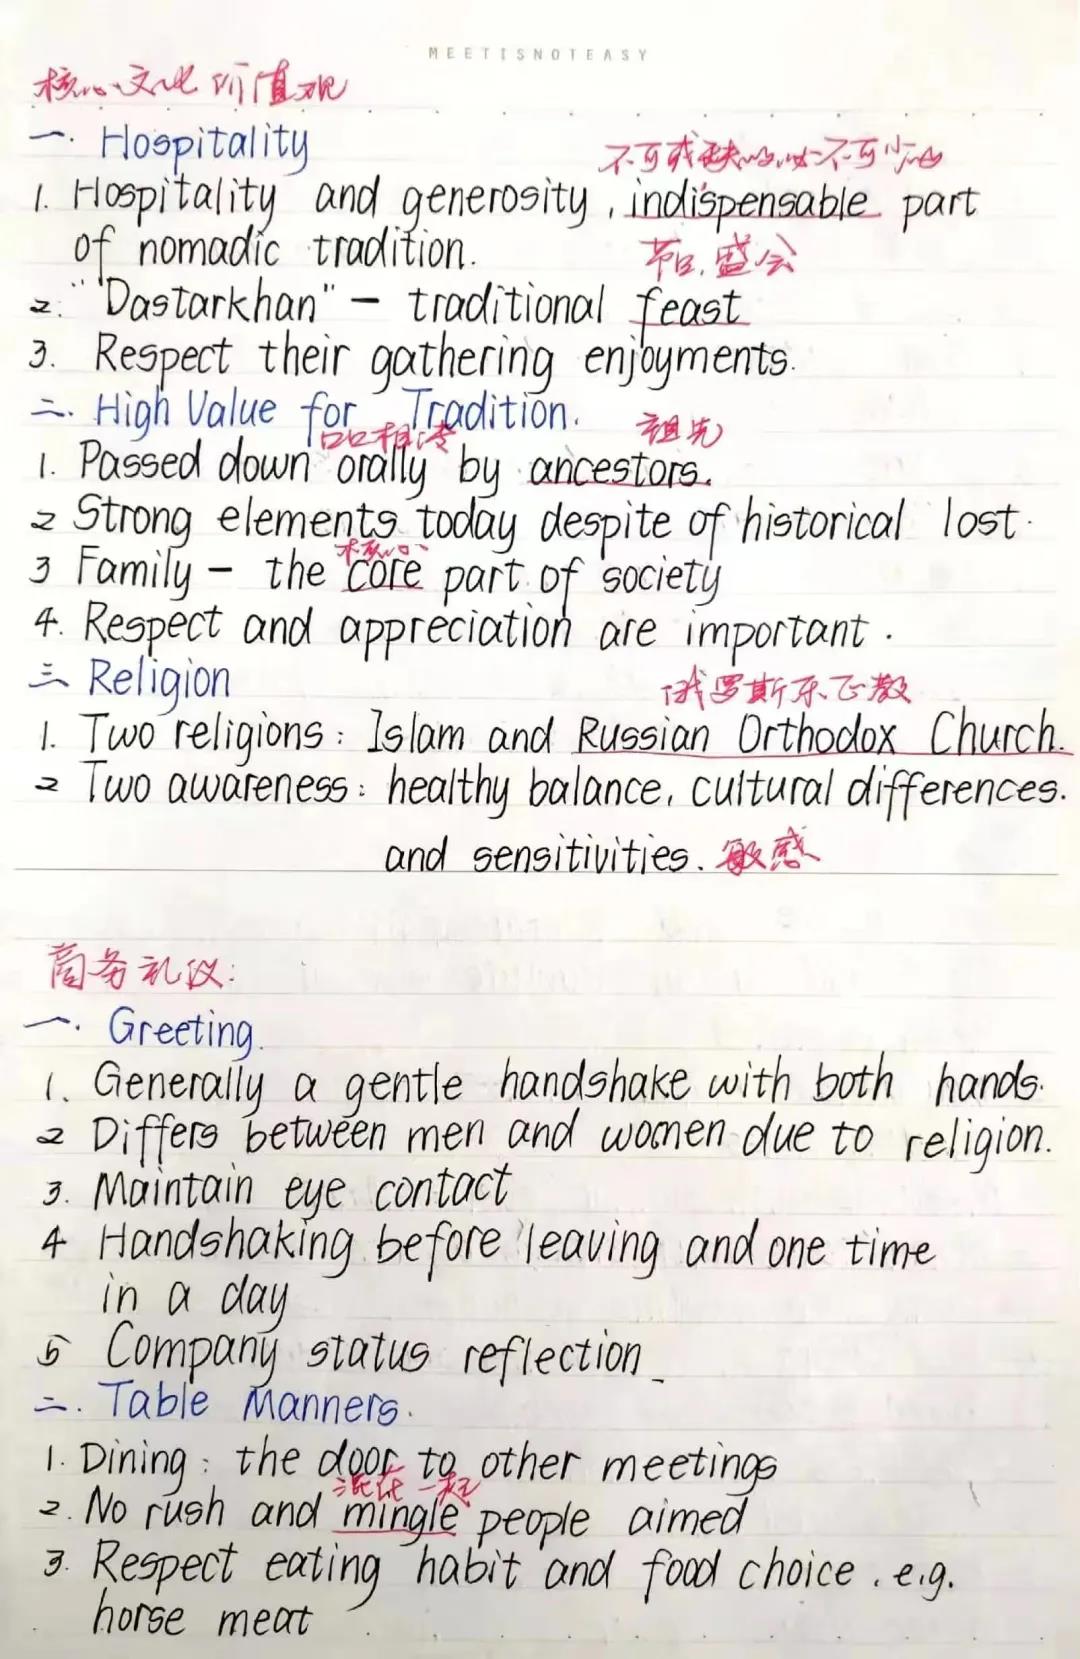 MEETISNOTEASY
核心文化价值观
一. Hospitality
不可或缺的,必不可少的
1. Hospitality and generosity, indispensable part
of nomadic tradition.
节日,盛会
2. "Dastarkhan" — traditional feast
3. Respect their gathering enjoyments.
二. High Value for Tradition.
口口相传 祖先
1. Passed down orally by ancestors.
2 Strong elements today despite of historical lost.
核心
3 Family — the core part of society
4. Respect and appreciation are important.
三 Religion
俄罗斯东正教
1. Two religions: Islam and Russian Orthodox Church.
2 Two awareness: healthy balance, cultural differences.
and sensitivities. 敏感
商务礼仪:
一. Greeting.
1. Generally a gentle handshake with both hands.
2 Differs between men and women due to religion.
3. Maintain eye contact
4 Handshaking before leaving and one time
in a day
5 Company status reflection_
二. Table Manners.
1. Dining: the door to other meetings
混在一起
2. No rush and mingle people aimed
3. Respect eating habit and food choice. e.g.
horse meat